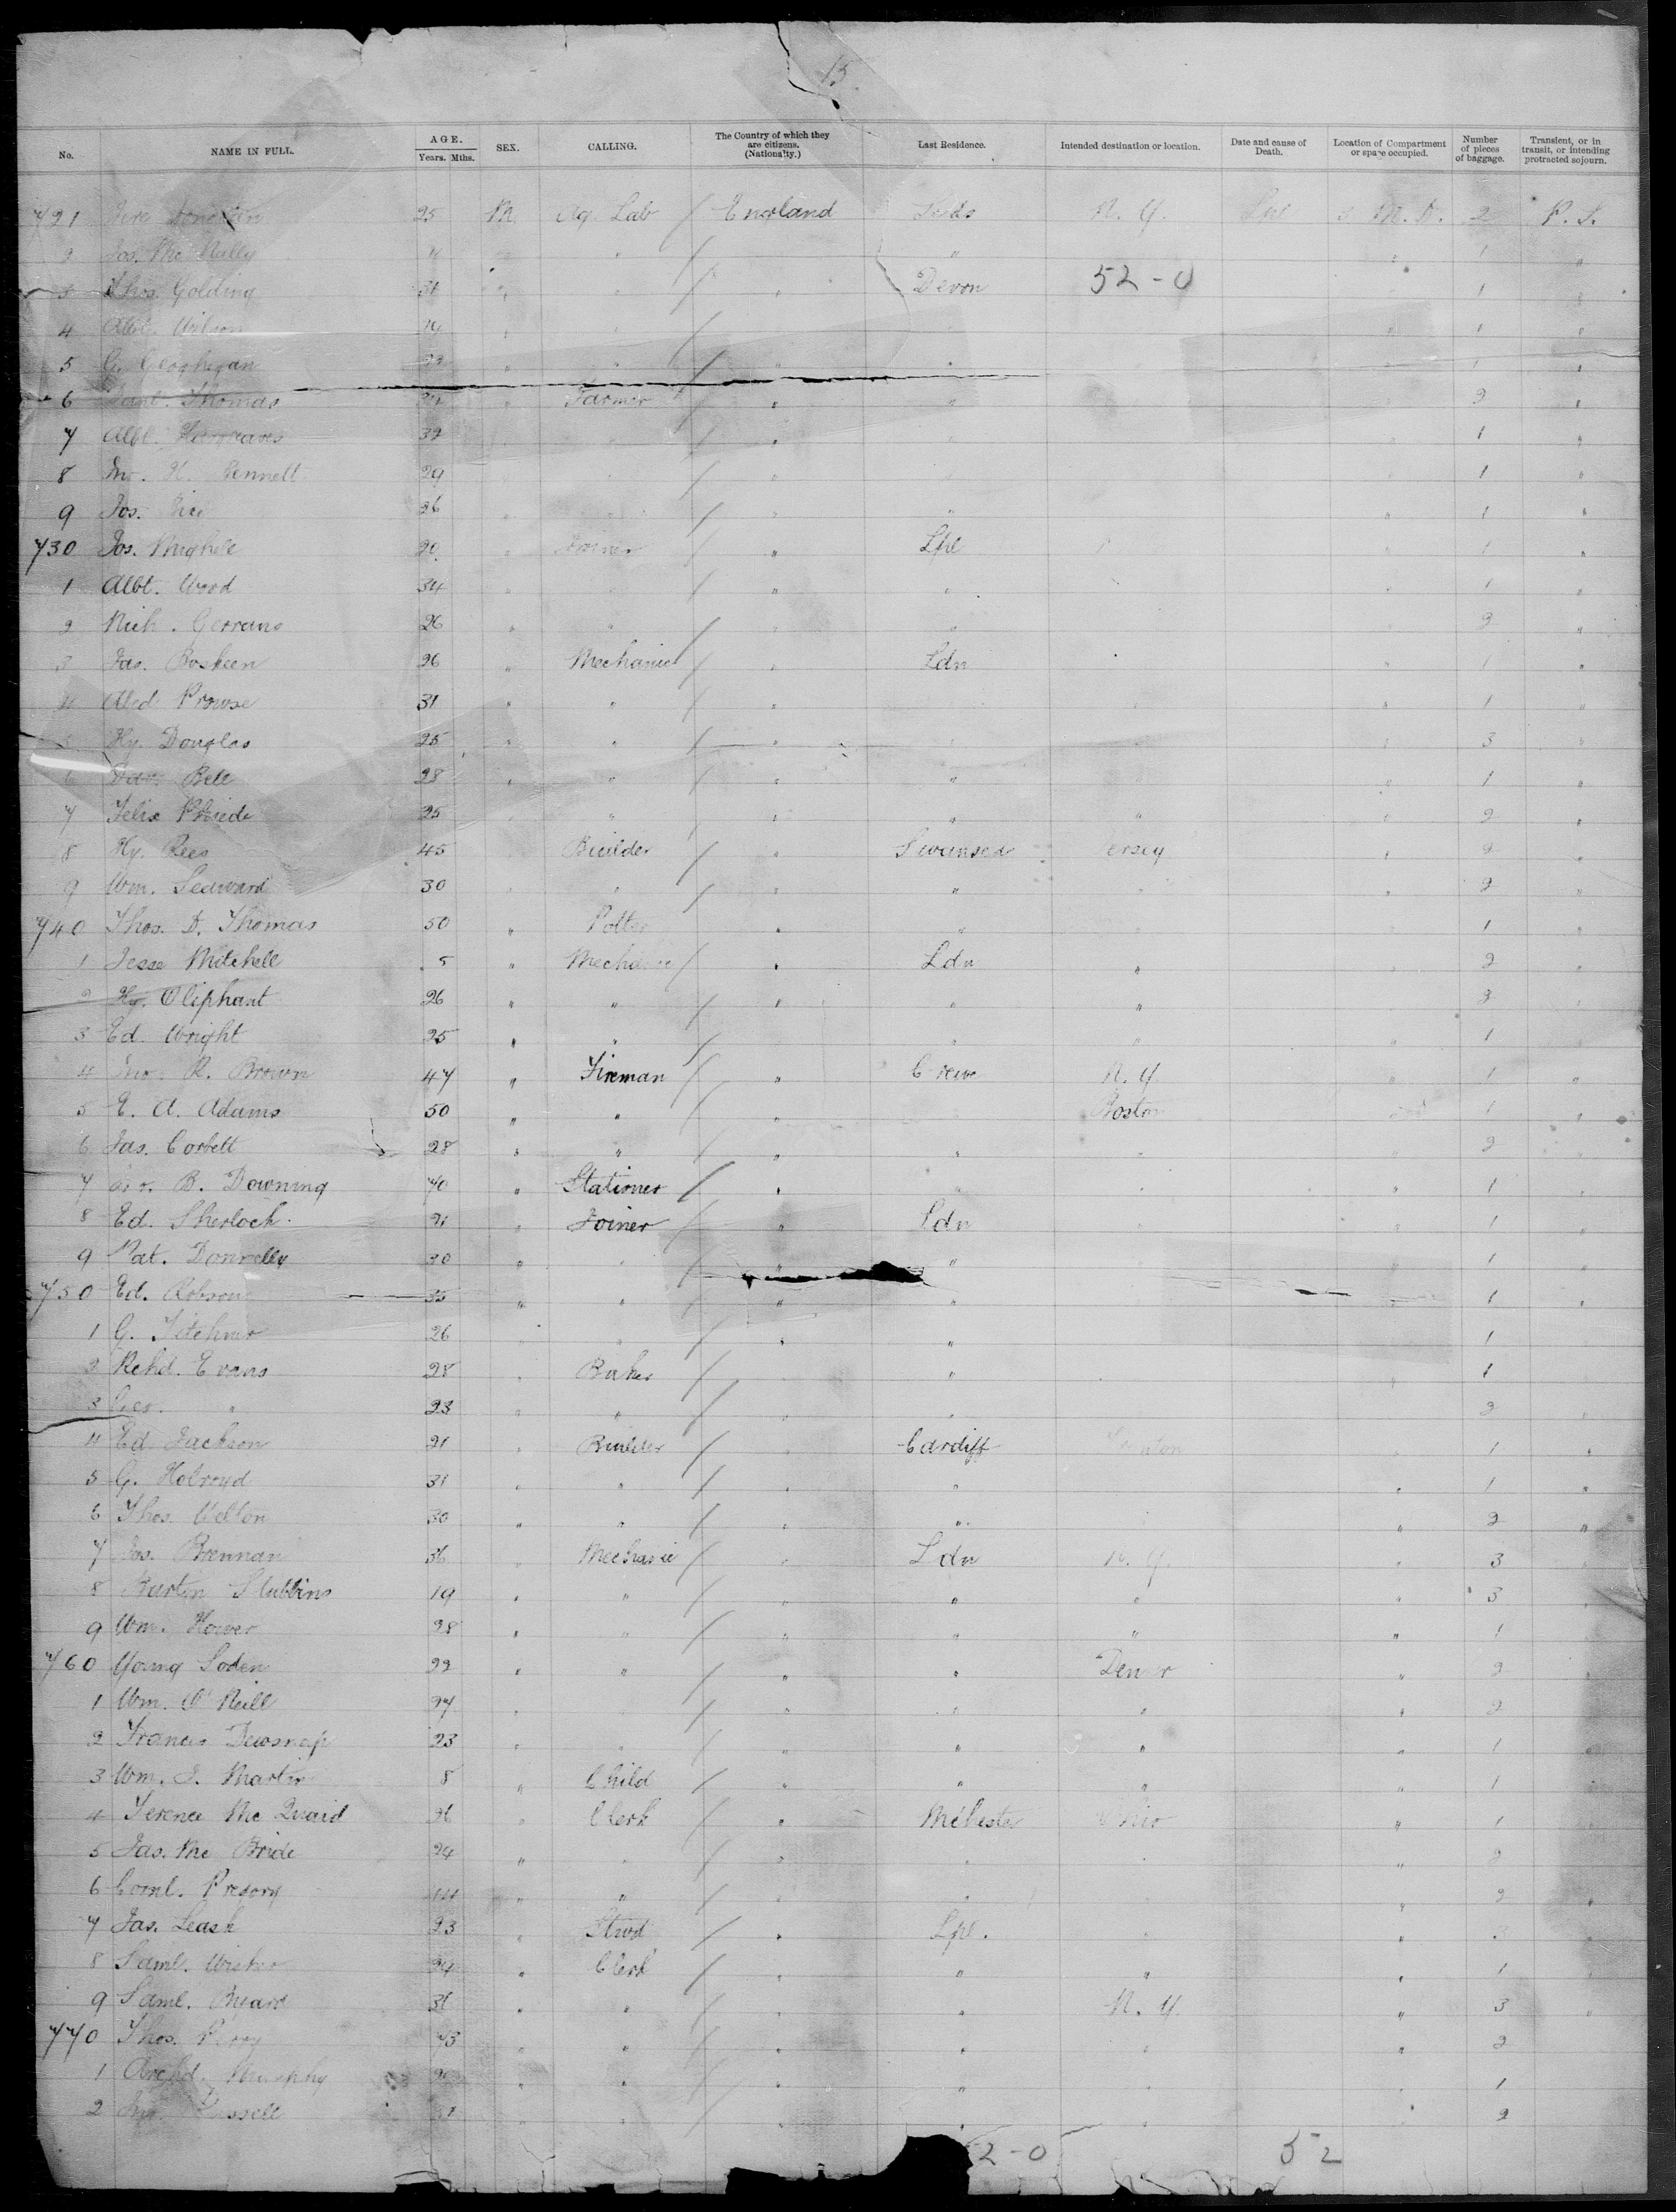 15
No. NAME IN FULL. AGE. Years. Mths. SEX. CALLING. The Country of which they are citizens. (Nationality.) Last Residence. Intended destination or location. Date and cause of Death. Location of Compartment or space occupied. Number of pieces of baggage. Transient, or in transit, or intending protracted sojourn.
721 25 M. Ag. Lab / England N. Y. 2 P. S.
2 Jas. Mc Nally " " / " 1 "
3 Thos. Golding 31 " " / " Devon 52-0 1 "
4 Albt. Wilson " / 1 "
5 G. Geoghegan 23 " " / " " 1 "
6 Saml. Thomas " Farmer / " " 2 "
7 Albt. Hargreaves 32 / " 1 "
8 Jno. H. Bennett 29 / " 1 "
9 Jos. 26 / " " 1 "
730 Jos. Mughill 20 " / " Lpl 1 "
1 Albt. Wood 34 " / " " 1 "
2 Nich. Gerrans 26 " " / " " 2 "
3 Jas. Boskeen 26 " Mechanic / " Ldn 1 "
4 Aled. Prowse 31 " " / " 1 "
5 Hy. Douglas 25 " " / " 3 "
6 Dav. Bell 28 " " / " " 1 "
7 Felix 25 " " / " " " 2 "
8 Hy. Rees 45 Builder / " Swansea Jersey 2 "
9 Wm. Seaward 30 " " / " " " 2 "
740 Thos. D. Thomas 50 " Potter " " 1 "
1 Jesse Mitchell 5 " Mechanic / " Ldn " 2 "
2 Hy. Oliphant 26 " " / " " " 3 "
3 Ed. Wright 25 " " / " " " 1 "
4 Jno. R. Brown 47 " Fireman / " Crewe N. Y. 1 "
5 E. A. Adams 50 " " / " Boston 1 "
6 Jas. Corbett 28 " " / " " " 2 "
7 B. Downing 40 " Stationer / " " 1 "
8 Ed. Sherlock 21 " Joiner / " Ldn 1 "
9 Pat. Donnelly 30 " " / " " 1 "
750 Ed. Robson 35 " " / " " 1 "
1 G. 26 " / " " 1 "
2 Rchd. Evans 28 " Baker / " " 1
3 Geo. " 23 " " / " " 2 "
4 Ed Jackson 21 " Builder / " Cardiff Trenton 1 "
5 G. Holroyd 31 " " / " " 1 "
6 Thos. Welton 30 " " / " " 2 "
7 Jos. Brennan 36 " Mechanic / " Ldn N. Y. 3 "
8 Burton Stubbins 19 " " / " " " 3 "
9 Wm. Hower 28 " " / " " " 1 "
760 Young Soden 22 " " / " " Denver 2 "
1 Wm. O'Neill 27 " " / " " " 2 "
2 Francis Dewsnap 23 " " / " " " 1 "
3 Wm. J. Martin 8 " Child / " " " 1 "
4 Terence Mc Quaid 26 " Clerk / " Mchester Ohio 1 "
5 Jas. Mc Bride 24 " " / " " " 2 "
6 Coml. Pregory " " / " " 2 "
7 Jas. Leask 23 " Stwd / " Lpl. " 3 "
8 Saml. " Clerk / " " " 1 "
9 Saml. Byard 31 " " / " " N. Y. 3 "
770 Thos. " " / " " " 2
1 Archd. Murphy " " / " " " 1
2 Russell " " / " " 2
2-0 52